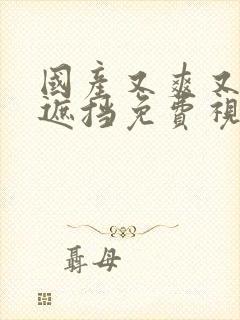 國產又爽又
遮挡免費視
聶母